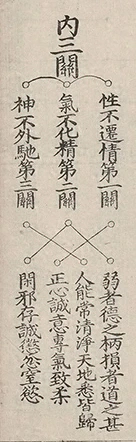 内三關
性不遷情第一關
氣不化精第二關
神不外馳第三關
弱者德之柄損者道之甚
人能常清淨天地悉皆歸
正心誠意專氣致柔
閑邪存誠懲忿窒慾